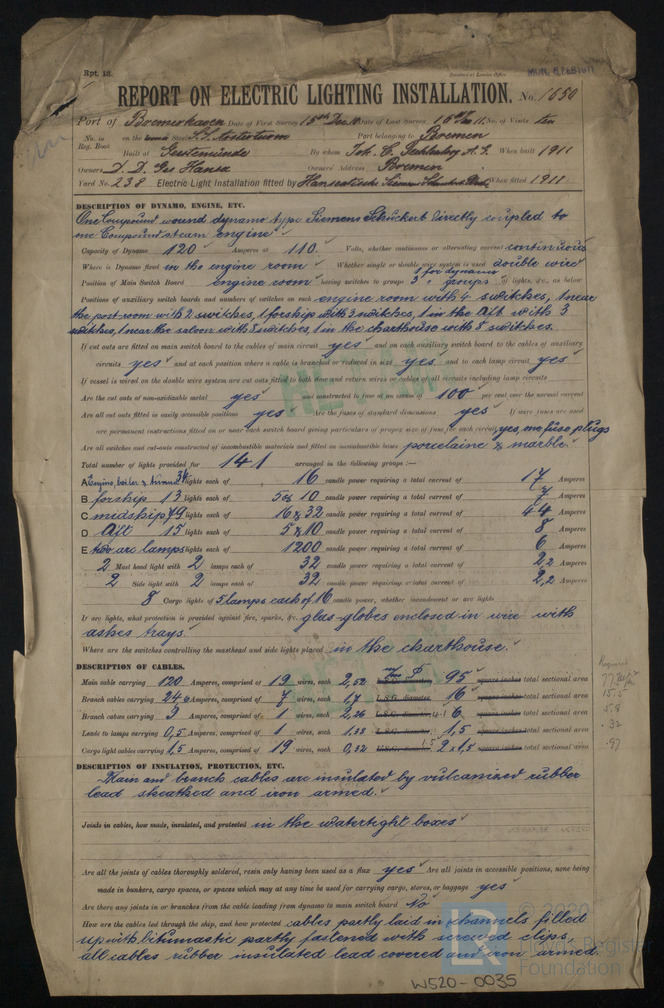 Rpt. 13.
REPORT ON ELECTRIC LIGHTING INSTALLATION. No. 1650
Port of Bremerhaven Date of First Survey 15th Dec 10 Date of Last Survey 16th No. of Visits ten
No. in Reg. Book on the Steel S.S. Port belonging to Bremen
Built at Geestemünde By whom Joh. C. Tecklenborg A.G. When built 1911
Owners D. D. Ges Hansa Owners' Address Bremen
Yard No. 238 Electric Light Installation fitted by Hanseatische Siemens Schuckert When fitted 1911
DESCRIPTION OF DYNAMO, ENGINE, ETC.
One Compound wound dynamo type Siemens Schuckert directly coupled to
one Compound steam engine
Capacity of Dynamo 120 Amperes at 110 Volts, whether continuous or alternating current continuous
Where is Dynamo fixed in the engine room Whether single or double wire system is used double wire
Position of Main Switch Board engine room having switches to groups 1 for dynamo 3 " groups of lights, &c., as below
Positions of auxiliary switch boards and numbers of switches on each engine room with 4 switches, 1 near
the port room with 2 switches, 1 forship with 3 switches, 1 in the aft with 3
switches, 1 near the saloon with 8 switches, 1 in the charthouse with 8 switches.
If cut outs are fitted on main switch board to the cables of main circuit yes and on each auxiliary switch board to the cables of auxiliary
circuits yes and at each position where a cable is branched or reduced in size yes and to each lamp circuit yes
If vessel is wired on the double wire system are cut outs fitted to both flow and return wires or cables of all circuits including lamp circuits
Are the cut outs of non-oxidizable metal yes and constructed to fuse at an excess of 100 per cent over the normal current
Are all cut outs fitted in easily accessible positions yes Are the fuses of standard dimensions yes If wire fuses are used
are permanent instructions fitted on or near each switch board giving particulars of proper size of fuse for each circuit yes, no fuse plugs
Are all switches and cut-outs constructed of incombustible materials and fitted on incombustible bases porcelaine & marble.
Total number of lights provided for 141 arranged in the following groups :—
A Engine, boiler & tunnel 34 lights each of 16 candle power requiring a total current of 17 Amperes
B forship 13 lights each of 5 & 10 candle power requiring a total current of 7 Amperes
C midship 79 lights each of 16 & 32 candle power requiring a total current of 44 Amperes
D Aft 15 lights each of 5 & 10 candle power requiring a total current of 8 Amperes
E two arc lamps lights each of 1200 candle power requiring a total current of 6 Amperes
2 Mast head light with 2 lamps each of 32 candle power requiring a total current of 2,2 Amperes
2 Side light with 2 lamps each of 32 candle power requiring a total current of 2,2 Amperes
8 Cargo lights of 5 lamps each of 16 candle power, whether incandescent or arc lights
If arc lights, what protection is provided against fire, sparks, &c. glas-globes enclosed in wire with
ashes trays.
Where are the switches controlling the masthead and side lights placed in the charthouse.
DESCRIPTION OF CABLES.
Main cable carrying 120 Amperes, comprised of 19 wires, each 2,52 95 square inches total sectional area
Branch cables carrying 24 Amperes, comprised of 7 wires, each 1,7 L.S.G. diameter, 16 square inches total sectional area
Branch cables carrying 3 Amperes, comprised of 1 wires, each 2,26 L.S.G. diameter, 6 square inches total sectional area
Leads to lamps carrying 0,5 Amperes, comprised of 1 wires, each 1,38 L.S.G. diameter, 1,5 square inches total sectional area
Cargo light cables carrying 1,5 Amperes, comprised of 19 wires, each 0,32 L.S.G. diameter, 2 x 1,5 square inches total sectional area
DESCRIPTION OF INSULATION, PROTECTION, ETC.
Main and branch cables are insulated by vulcanized rubber
lead sheathed and iron armed.
Joints in cables, how made, insulated, and protected in the watertight boxes
Are all the joints of cables thoroughly soldered, resin only having been used as a flux yes Are all joints in accessible positions, none being
made in bunkers, cargo spaces, or spaces which may at any time be used for carrying cargo, stores, or baggage yes
Are there any joints in or branches from the cable leading from dynamo to main switch board No
How are the cables led through the ship, and how protected cables partly laid in channels filled
up with bitumastic partly fastened with screwed clips,
all cables rubber insulated lead covered and iron armed.
W520-0035
© 2020
Lloyd's Register
Foundation